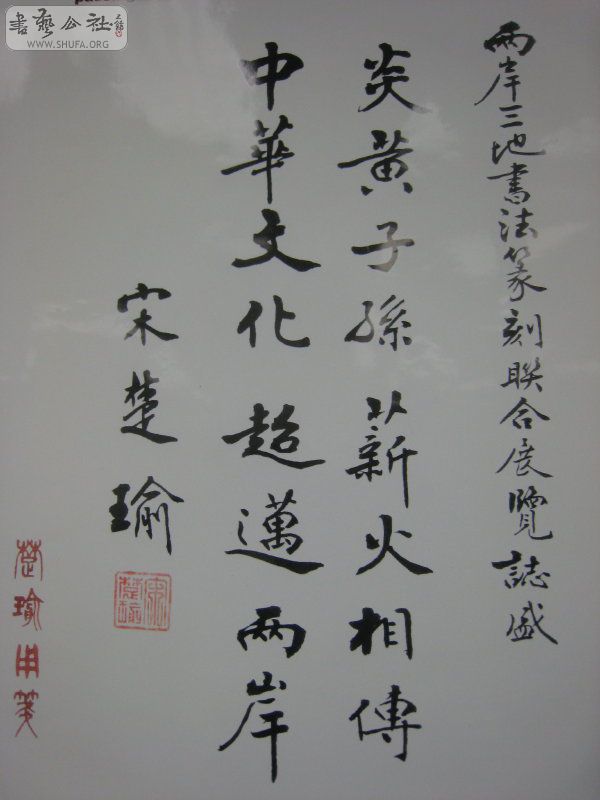 書藝公社
WWW.SHUFA.ORG
兩岸三地書法篆刻聯合展覽誌盛
炎黃子孫薪火相傳
中華文化超邁兩岸
宋楚瑜
宋楚瑜
楚瑜用箋